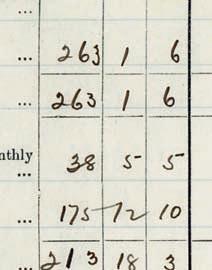 ...
... 263 1 6
... 263 1 6
nthly
... 38 5 5
... 175 12 10
... 213 18 3